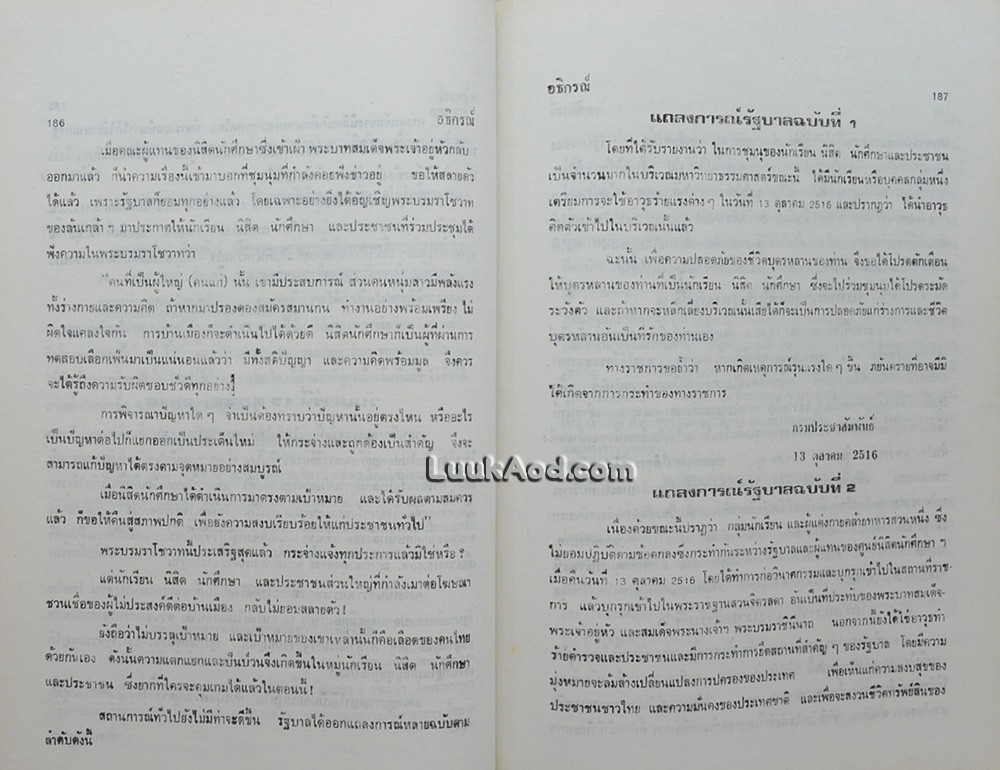 186
อธิกรณ์
เมื่อคณะผู้แทนของนิสิตนักศึกษาซึ่งเข้าเฝ้า พระบาทสมเด็จพระเจ้าอยู่หัวกลับ
ออกมาแล้ว ก็นำความเรื่องนี้เข้ามาบอกที่ชุมนุมที่กำลังคอยฟังข่าวอยู่ ขอให้สลายตัว
ได้แล้ว เพราะรัฐบาลก็ยอมทุกอย่างแล้ว โดยเฉพาะอย่างยิ่งได้อัญเชิญพระบรมราโชวาท
ของล้นเกล้า ๆ มาประกาศให้นักเรียน นิสิต นักศึกษา และประชาชนที่ร่วมประชุมได้
ฟังความในพระบรมราโชวาทว่า
"คนที่เป็นผู้ใหญ่ (คนแก่) นั้น เขามีประสบการณ์ ส่วนคนหนุ่มสาวมีพลังแรง
ทั้งร่างกายและความคิด ถ้าหากมาปรองดองสมัครสมานกัน ทำงานอย่างพร้อมเพรียง ไม่
ผิดใจแคลงใจกัน การบ้านเมืองก็จะดำเนินไปได้ด้วยดี นิสิตนักศึกษาก็เป็นผู้ที่ผ่านการ
ทดสอบเลือกเฟ้นมาเป็นแน่นอนแล้วว่า มีทั้งสติปัญญา และความคิดพร้อมมูล จึงควร
จะได้รู้ถึงความรับผิดชอบชั่วดีทุกอย่าง
การพิจารณาปัญหาใด ๆ จำเป็นต้องทราบว่าปัญหานั้นอยู่ตรงไหน หรืออะไร
เป็นปัญหาต่อไปก็แยกออกเป็นประเด็นใหม่ ให้กระจ่างและถูกต้องเป็นสำคัญ จึงจะ
สามารถแก้ปัญหาได้ตรงตามจุดหมายอย่างสมบูรณ์
เมื่อนิสิตนักศึกษาได้ดำเนินการมาตรงตามเป้าหมาย และได้รับผลตามสมควร
แล้ว ก็ขอให้คืนสู่สภาพปกติ เพื่อยังความสงบเรียบร้อยให้แก่ประชาชนทั่วไป"
พระบรมราโชวาทนี้ประเสริฐสุดแล้ว กระจ่างแจ้งทุกประการแล้วมิใช่หรือ ?
แต่นักเรียน นิสิต นักศึกษา และประชาชนส่วนใหญ่ที่กำลังเมาต่อโฆษณา
ชวนเชื่อของผู้ไม่ประสงค์ดีต่อบ้านเมือง กลับไม่ยอมสลายตัว !
ยังถือว่าไม่บรรลุเป้าหมาย และเป้าหมายของเขาเหล่านั้นก็คือเลือดของคนไทย
ด้วยกันเอง ดังนั้นความแตกแยกและปั่นป่วนจึงเกิดขึ้นในหมู่นักเรียน นิสิต นักศึกษา
และประชาชน ซึ่งยากที่ใครจะคุมเกมได้แล้วในตอนนี้ !
สถานการณ์ทั่วไปยังไม่มีท่าจะดีขึ้น รัฐบาลได้ออกแถลงการณ์หลายฉบับตาม
ลำดับดังนี้
อธิกรณ์
187
แถลงการณ์รัฐบาลฉบับที่ 1
โดยที่ได้รับรายงานว่า ในการชุมนุมของนักเรียน นิสิต นักศึกษาและประชาชน
เป็นจำนวนมากในบริเวณมหาวิทยาธรรมศาสตร์ขณะนี้ ได้มีนักเรียนหรือบุคคลกลุ่มหนึ่ง
เตรียมการจะใช้อาวุธร้ายแรงต่าง ๆ ในวันที่ 13 ตุลาคม 2516 และปรากฏว่า ได้นำอาวุธ
ติดตัวเข้าไปในบริเวณนั้นแล้ว
ฉะนั้น เพื่อความปลอดภัยของชีวิตบุตรหลานของท่าน จึงขอได้โปรดตักเตือน
ให้บุตรหลานของท่านที่เป็นนักเรียน นิสิต นักศึกษา ซึ่งจะไปร่วมชุมนุมได้โปรดระมัด
ระวังตัว และถ้าหากจะหลีกเลี่ยงบริเวณนั้นเสียได้ก็จะเป็นการปลอดภัยแก่ร่างกายและชีวิต
บุตรหลานอันเป็นที่รักของท่านเอง
ทางราชการขอย้ำว่า หากเกิดเหตุการณ์รุนแรงใด ๆ ขึ้น ภยันตรายที่อาจมีมิ
ได้เกิดจากการกระทำของทางราชการ
กรมประชาสัมพันธ์
13 ตุลาคม 2516
LuukAod.com
แถลงการณ์รัฐบาลฉบับที่ 2
เนื่องด้วยขณะนี้ปรากฏว่า กลุ่มนักเรียน และผู้แต่งกายคล้ายทหารส่วนหนึ่ง ซึ่ง
ไม่ยอมปฏิบัติตามข้อตกลงซึ่งกระทำกันระหว่างรัฐบาลและผู้แทนของศูนย์นิสิตนักศึกษา ๆ
เมื่อคืนวันที่ 13 ตุลาคม 2516 โดยได้ทำการก่อวินาศกรรมและบุกรุกเข้าไปในสถานที่ราช-
การ แล้วบุกรุกเข้าไปในพระราชฐานสวนจิตรลดา อันเป็นที่ประทับของพระบาทสมเด็จ-
พระเจ้าอยู่หัว และสมเด็จพระนางเจ้าฯ พระบรมราชินีนาถ นอกจากนี้ยังได้ใช้อาวุธทำ
ร้ายตำรวจและประชาชนและมีการกระทำการยึดสถานที่สำคัญ ๆ ของรัฐบาล โดยมีความ
มุ่งหมายจะล้มล้างเปลี่ยนแปลงการปกครองของประเทศ เพื่อเห็นแก่ความสงบสุขของ
ประชาชนชาวไทย และความมั่นคงของประเทศชาติ และเพื่อจะสงวนชีวิตทรัพย์สินของ